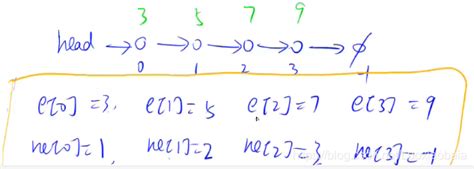 3 5 7 9
head → 0 → 0 → 0 → 0 → ∅
0 1 2 3 -1
e[0]=3, e[1]=5 e[2]=7 e[3]=9
ne[0]=1, ne[1]=2 ne[2]=3, ne[3]=-1